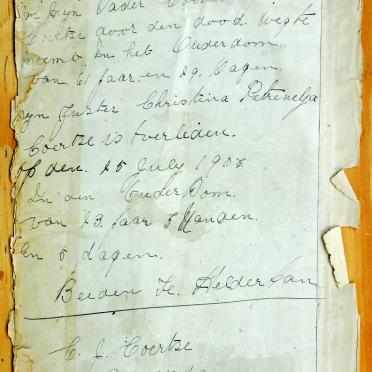 Mijn Vader
Coertse door den dood. Wegte
neemt. In het Ouderdom.
van. 61 Jaar en 29. Dagen.
Myn Juster Christina Petronella
Coertse is overleden.
op den. 15 July 1903.
In den Ouder Dom.
van 13. Jaar 5 Manden.
En 5 dagen.
Beiden Te. Helderfan
C. J. Coertse